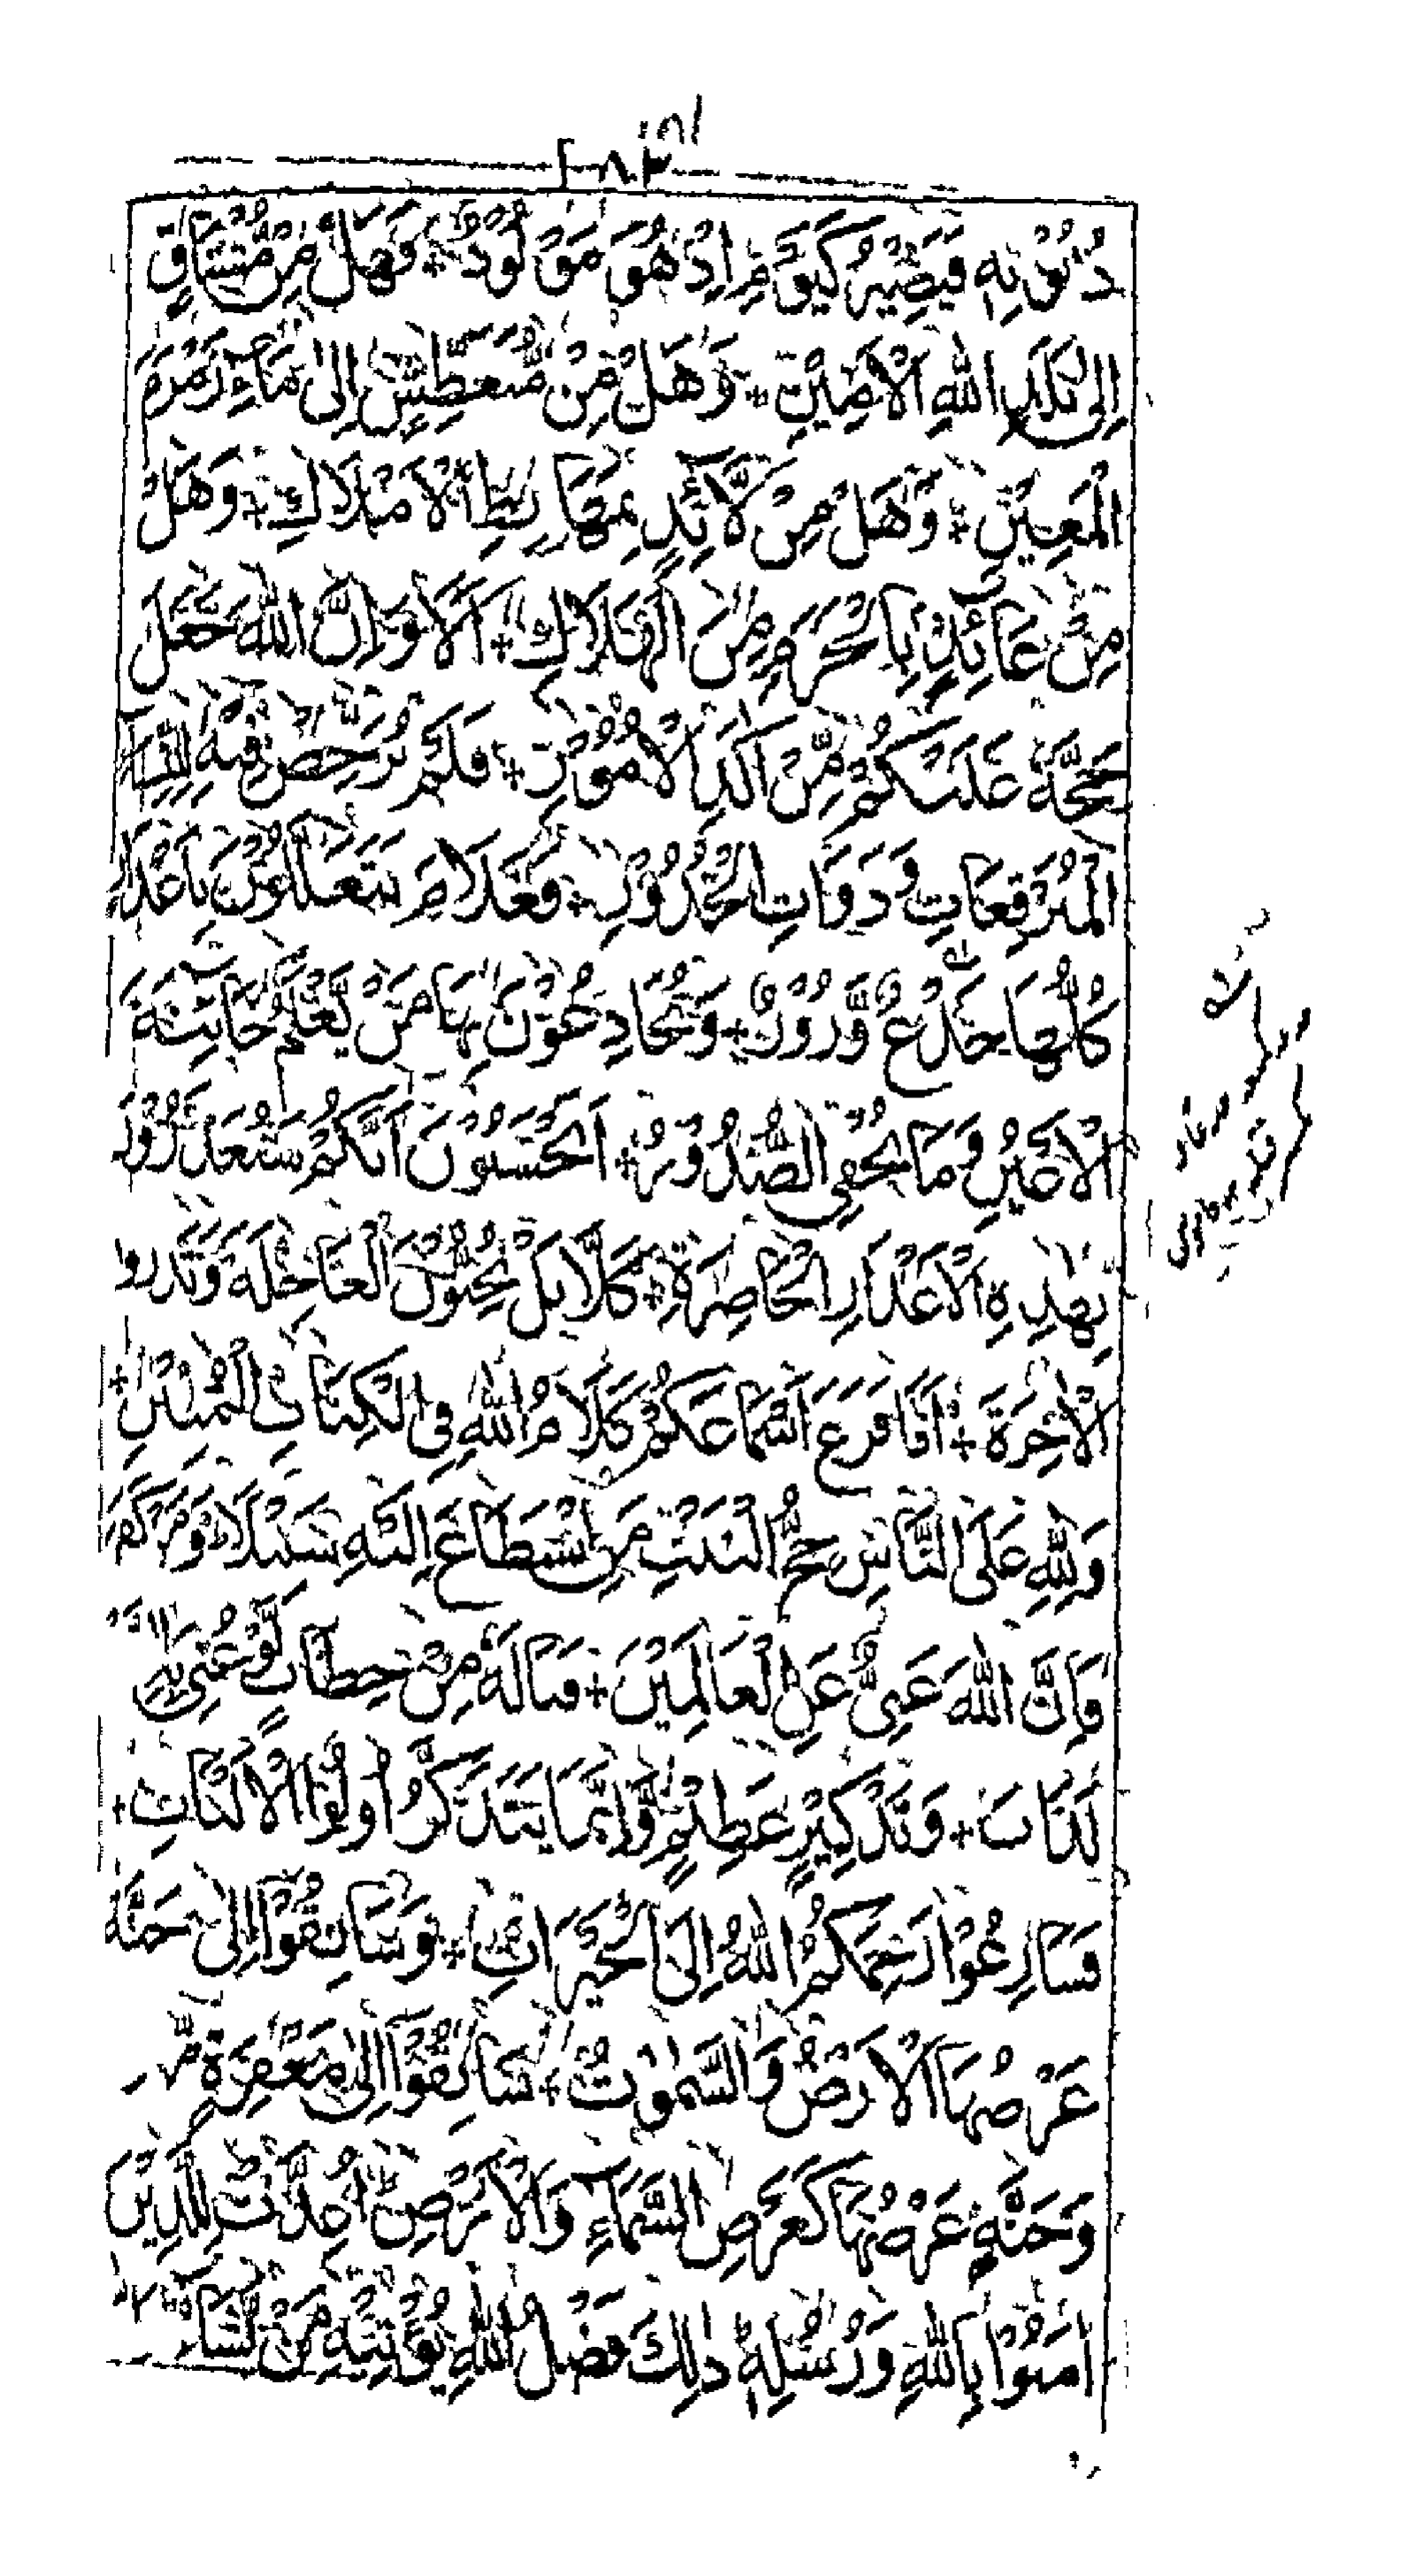 ذُنُوْبِهٖ فَيَصِيْرُ كَيَوْمِ إِذْ هُوَ مَوْلُوْدٌ + وَهَلْ مِنْ مُّشْتَاقٍ
اِلٰى بَلَدِ اللّٰهِ الْاَمِيْنِ + وَهَلْ مِنْ مُّتَعَطِّشٍ اِلٰى مَاءِ زَمْزَمَ
الْمَعِيْنِ + وَهَلْ مِنْ لَّائِذٍ بِمَهَابِطِ الْاَمْلَاكِ + وَهَلْ
مِنْ عَائِذٍ بِالْحَرَمِ مِنَ الْهَلَاكِ + اَلَا وَاِنَّ اللّٰهَ جَعَلَ
حَجَّهٗ عَلَيْكُمْ مِّنْ اٰكَدِ الْاُمُوْرِ + فَلَمْ يُرَخِّصْ فِيْهِ لِلنِّسَاءِ
الْمُبَرْقَعَاتِ وَذَوَاتِ الْخُدُوْرِ + فَعَلَامَ تَتَعَلَّلُوْنَ بِاَعْذَارٍ
كُلُّهَا خَدْعٌ وَّزُوْرٌ + وَتُخَادِعُوْنَ بِهَا مَنْ يَّعْلَمُ خَائِنَةَ
الْاَعْيُنِ وَمَا تُخْفِي الصُّدُوْرُ + اَتَحْسَبُوْنَ اَنَّكُمْ سَتُعْذَرُوْنَ
بِهٰذِهِ الْاَعْذَارِ الْحَاضِرَةِ + كَلَّا بَلْ تُحِبُّوْنَ الْعَاجِلَةَ وَتَذَرُوْنَ
الْاٰخِرَةَ + اَمَا قَرَعَ اَسْمَاعَكُمْ كَلَامُ اللّٰهِ فِي الْكِتَابِ الْمُبِيْنِ +
وَلِلّٰهِ عَلَى النَّاسِ حِجُّ الْبَيْتِ مَنِ اسْتَطَاعَ اِلَيْهِ سَبِيْلًا وَمَنْ كَفَرَ
فَاِنَّ اللّٰهَ غَنِيٌّ عَنِ الْعَالَمِيْنَ + فَيَالَهٗ مِنْ خِطَابٍ لَّوْ عُنِيَ بِهٖ
لَذَابَ + وَتَذْكِيْرٍ عَظِيْمٍ وَّاِنَّمَا يَتَذَكَّرُ اُولُوا الْاَلْبَابِ +
فَسَارِعُوْا رَحِمَكُمُ اللّٰهُ اِلَى الْخَيْرَاتِ + وَسَابِقُوْا اِلٰى جَنَّةٍ
عَرْضُهَا الْاَرْضُ وَالسَّمٰوٰتُ + سَابِقُوْا اِلٰى مَغْفِرَةٍ مِّنْ
وَجَنَّةٍ عَرْضُهَا كَعَرْضِ السَّمَاءِ وَالْاَرْضِ اُعِدَّتْ لِلَّذِيْنَ
اٰمَنُوْا بِاللّٰهِ وَرُسُلِهٖ ذٰلِكَ فَضْلُ اللّٰهِ يُؤْتِيْهِ مَنْ يَّشَاءُ